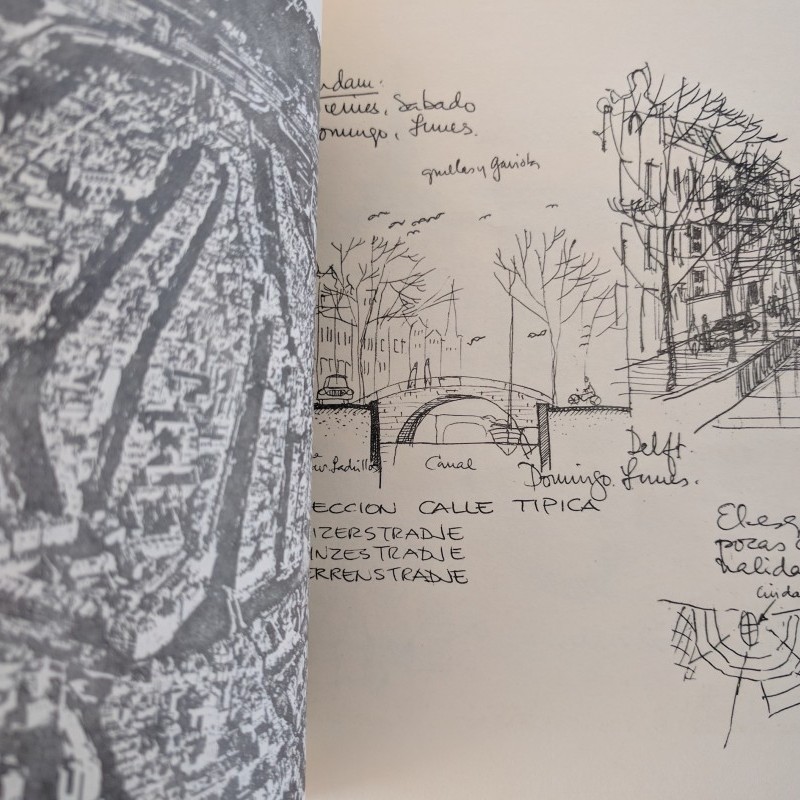 dam:
iernes, Sabado
omingo, Lunes.
grullas y Gaviotas
Ladrillos
Canal
Delft.
Domingo. Lunes.
ECCION CALLE TIPICA
IZERSTRADJE
INZESTRADJE
ERRENSTRADJE
El esq
pocas
halida
Ciuda